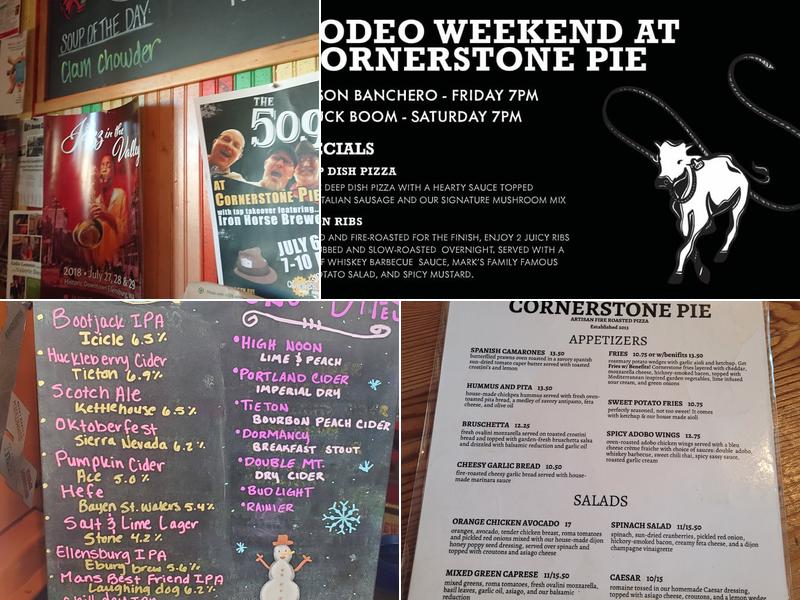 SOUP OF THE DAY:
Clam chowder
Jazz in the
Valley
2018 • July 27, 28 & 29
THE
509
AT
CORNERSTONE PIE
with tap takeover featuring...
Iron Horse
JULY 6
7-10
ODEO WEEKEND AT
ORNERSTONE PIE
SON BANCHERO - FRIDAY 7PM
UCK BOOM - SATURDAY 7PM
ECIALS
P DISH PIZZA
DEEP DISH PIZZA WITH A HEARTY SAUCE TOPPED
TALIAN SAUSAGE AND OUR SIGNATURE MUSHROOM MIX
N RIBS
D AND FIRE-ROASTED FOR THE FINISH, ENJOY 2 JUICY RIBS
UBBED AND SLOW-ROASTED OVERNIGHT. SERVED WITH A
F WHISKEY BARBECUE SAUCE, MARK'S FAMILY FAMOUS
OTATO SALAD, AND SPICY MUSTARD.
Bootjack IPA
Icicle 6.5%
Huckleberry Cider
Tieton 6.9%
Scotch Ale
Kettlehouse 6.5%
Oktoberfest
Sierra Nevada 6.2%
Pumpkin Cider
Ace 5.0%
Hefe
Bayern St. Walkers 5.4%
Salt & Lime Lager
Stone 4.2%
Ellensburg IPA
Eburg brew 5.6%
Mans Best Friend IPA
Laughing dog 6.2%
•HIGH NOON
LIME & PEACH
•PORTLAND CIDER
IMPERIAL DRY
•TIETON
BOURBON PEACH CIDER
•DORMANCY
BREAKFAST STOUT
•DOUBLE MT.
DRY CIDER
•BUD LIGHT
•RAINIER
CORNERSTONE PIE
ARTISAN FIRE ROASTED PIZZA
Established 2013
APPETIZERS
SPANISH CAMARONES 13.50
butterflied prawns oven roasted in a savory spanish
sun-dried tomato caper butter served with roasted
crostini's and lemon
HUMMUS AND PITA 13.50
house-made chickpea hummus served with fresh oven-
toasted pita bread, a medley of savory antipasto, feta
cheese, and olive oil
BRUSCHETTA 12.25
fresh ovalini mozzarella served on toasted crostini
bread and topped with garden-fresh bruschetta salsa
and drizzled with balsamic reduction and garlic oil
CHEESY GARLIC BREAD 10.50
fire-roasted cheesy garlic bread served with house-
made marinara sauce
FRIES 10.75 or w/benifits 13.50
rosemary potato wedges with garlic aioli and ketchup. Get
Fries w/ Benefits! Cornerstone fries layered with cheddar,
mozzarella cheese, hickory-smoked bacon, topped with
Mediterranean inspired garden vegetables, lime infused
sour cream, and green onions
SWEET POTATO FRIES 10.75
perfectly seasoned, not too sweet! It comes
with ketchup & our house made aioli
SPICY ADOBO WINGS 12.75
oven-roasted adobo chicken wings served with a bleu
cheese crème fraiche with choice of sauces: double adobo,
whiskey barbecue, sweet chili thai, spicy sassy sauce,
roasted garlic cream
SALADS
ORANGE CHICKEN AVOCADO 17
oranges, avocado, tender chicken breast, roma tomatoes
and pickled red onions mixed with our house-made dijon
honey poppy seed dressing, served over spinach and
topped with croutons and asiago cheese
MIXED GREEN CAPRESE 11/15.50
mixed greens, roma tomatoes, fresh ovalini mozzarella,
basil leaves, garlic oil, asiago, and our balsamic
reduction
SPINACH SALAD 11/13.50
spinach, sun-dried cranberries, pickled red onion,
hickory-smoked bacon, creamy feta cheese, and a dijon
champagne vinaigrette
CAESAR 10/15
romaine tossed in our homemade Caesar dressing,
topped with asiago cheese, croutons, and a lemon wedge